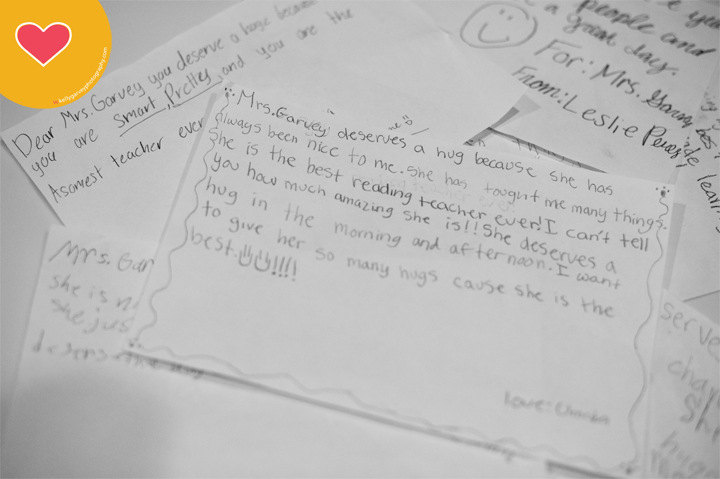 kellygarveyphotography.com
Dear Mrs. Garvey you deserve a huge because
you are smart, Pretty, and you are the
Asomest teacher ever
people and
a good day.
For: Mrs. Garvey
From: Leslie
Mrs. Garvey deserves a hug because she has
always been nice to me. she has tought me many things.
She is the best reading teacher ever! I can't tell
you how much amazing she is!! She deserves a
hug in the morning and afternoon. I want
to give her so many hugs cause she is the
best. !!!!
love:
Mrs. Gar
she is n
she jus
serve